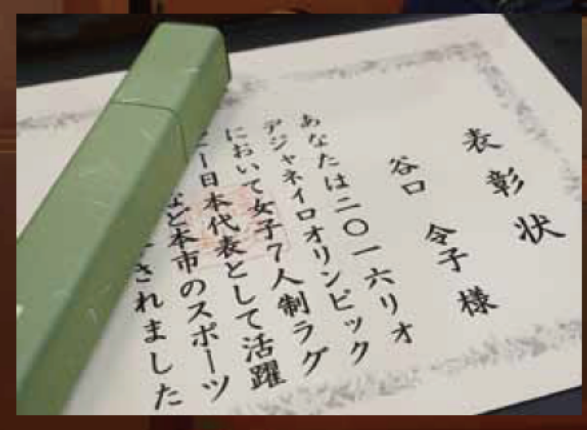 表彰状
谷口 令子 様
あなたは二〇一六リオ
デジャネイロオリンピック
において女子7人制ラグ
ー日本代表として活躍
など本市のスポーツ
されました